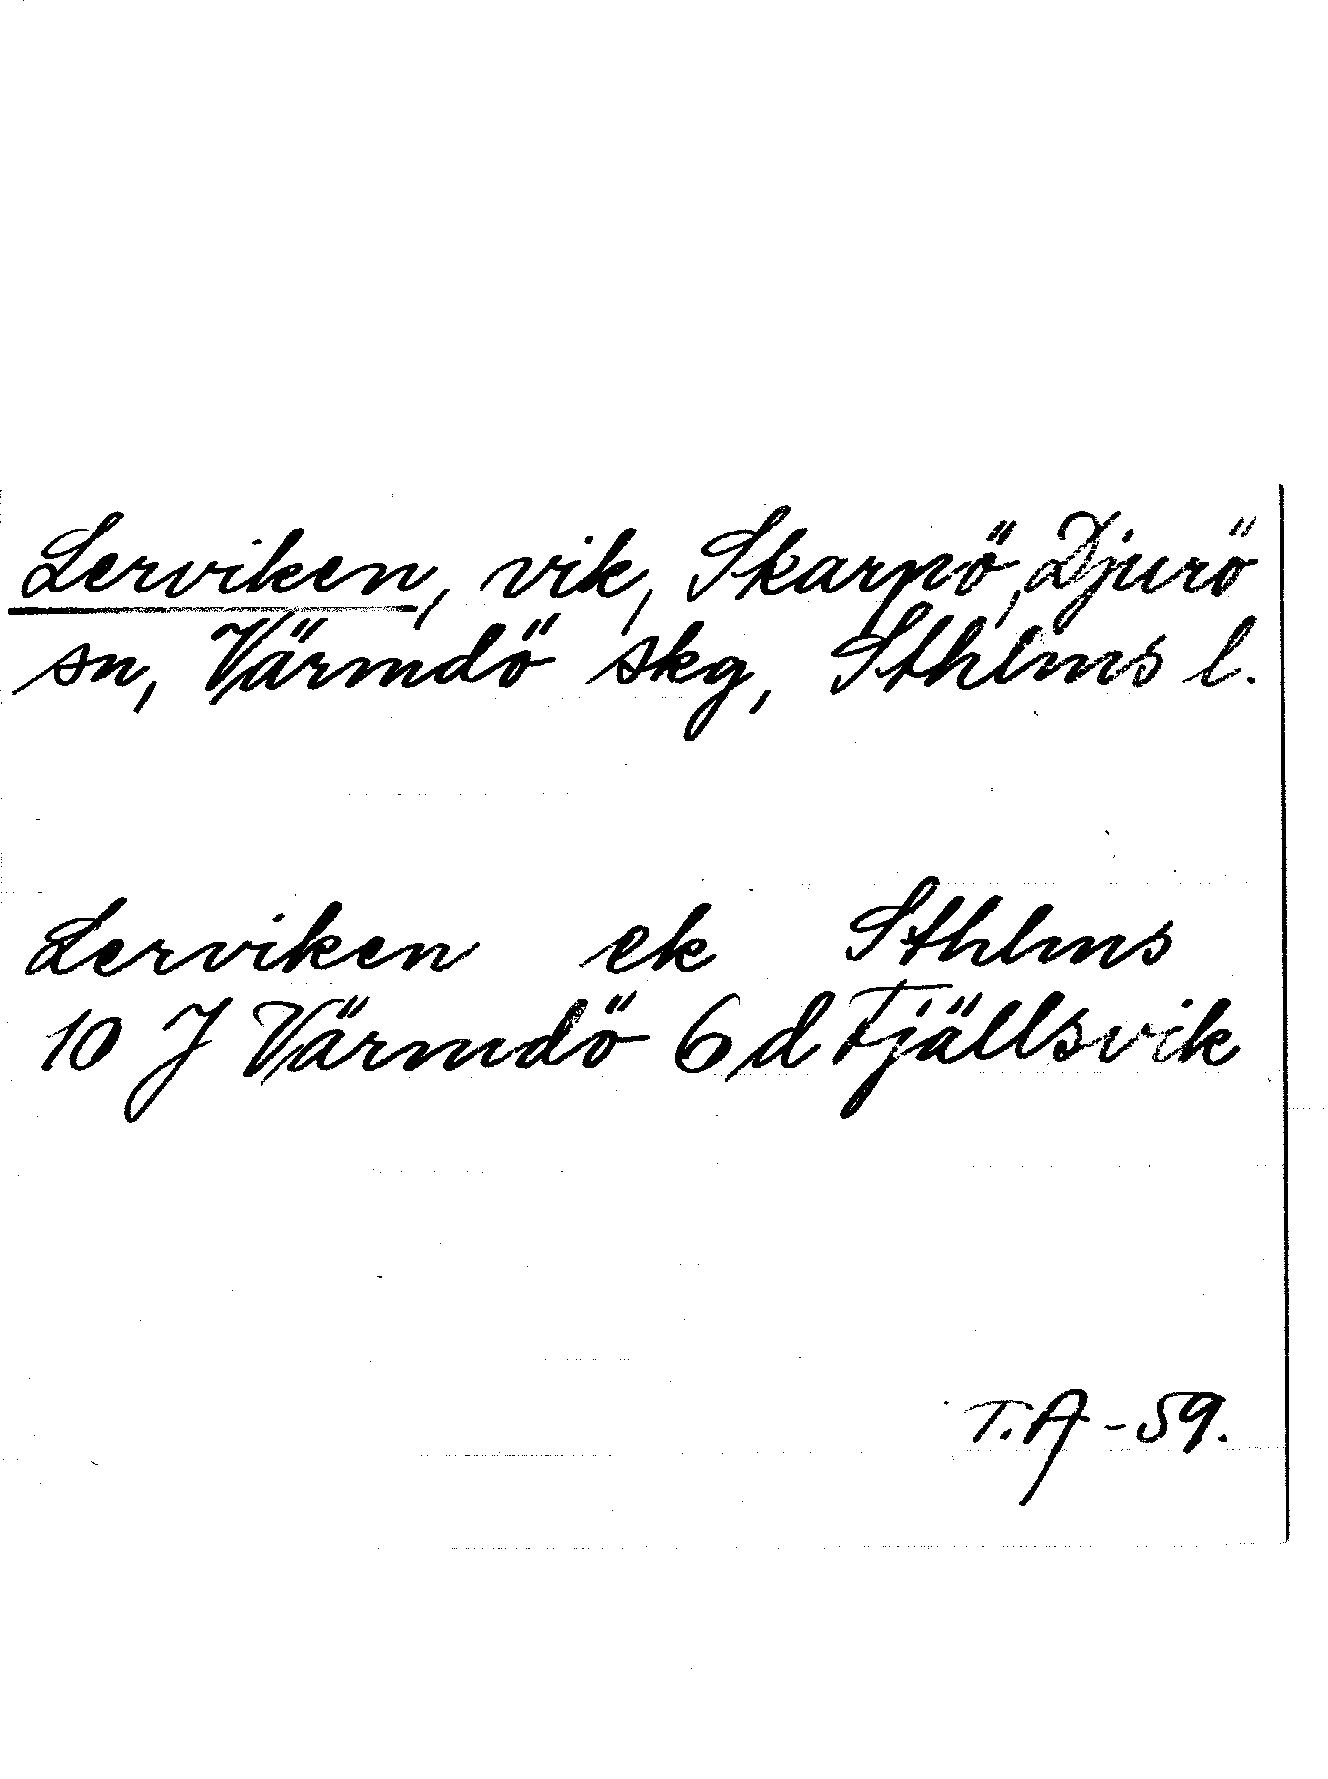 Lerviken, vik, Skarpö, Djurö
sn, Värmdö skg, Sthlms l.
Lerviken ek Sthlms
10 J Värmdö 6 d Fjällsvik
T.A -59.